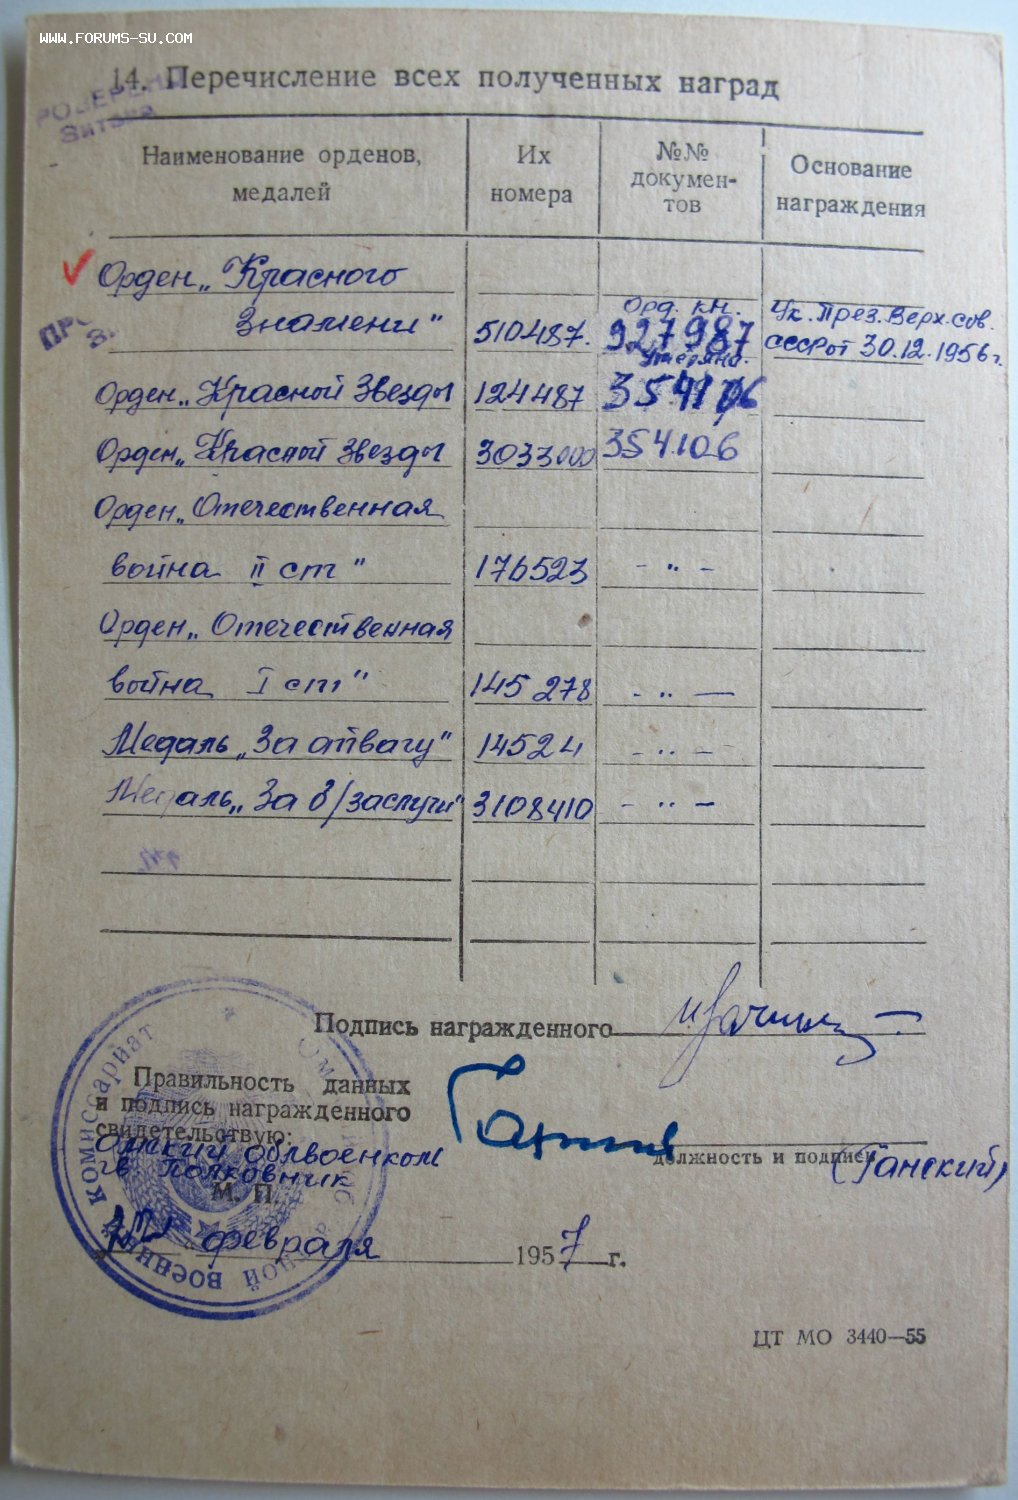 www.forums-su.com
14. Перечисление всех полученных наград
Наименование орденов, медалей
Их номера
№№ докумен-
тов
Основание награждения
Орден „Красного
Знамени" 510487. Орд. кн. 927987 Ук. През. Верх. сов.
СССР от 30.12.1956 г.
утеряна.
Орден „Красной Звезды 124487
Орден „Красной Звезды 3033000 354106
Орден „Отечественная
война II ст" 176523 - " -
Орден „Отечественная
война I ст" 145278 - " -
Медаль „За отвагу" 14524 - " -
Медаль „За б/заслуги" 3108410 - " -
Подпись награжденного
Правильность данных
и подпись награжденного
свидетельствую:
Омский облвоенком
гв полковник
М. П.
должность и подпись
(Ганский)
февраля 1957 г.
ВОЕННЫЙ КОМИССАРИАТ
ЦТ МО 3440—55